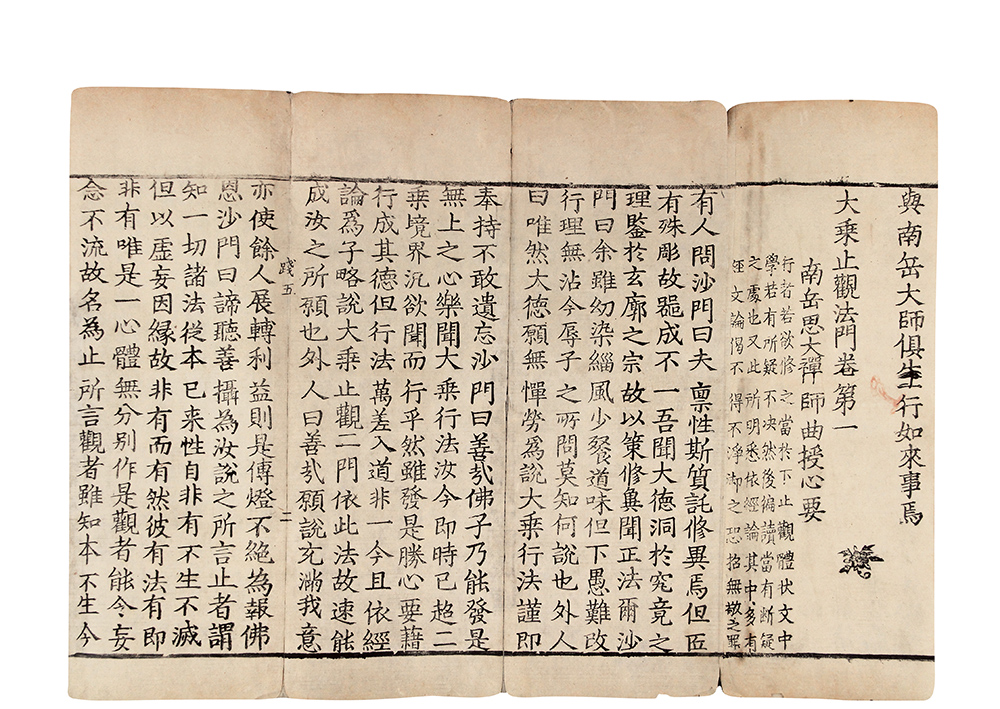 與南岳大師俱生行如來事焉
大乘止觀法門卷第一
南岳思大禪師曲授心要
行者若欲修之當於下止觀體狀文中
學若有所疑不決然後徧讀當有斷疑
之處也又此所明悉依經論其中多有
經文論偈不得不淨御之恐招無敬之罪
有人問沙門曰夫稟性斯質託修異焉但匠
有殊彫故噐成不一吾聞大德洞於究竟之
理鑒於玄廓之宗故以策修兾聞正法爾沙
門曰余雖幼染緇風少飡道味但下愚難改
行理無沾今辱子之所問莫知何說也外人
曰唯然大德願無憚勞爲說大乘行法謹即
奉持不敢遺忘沙門曰善㢤佛子乃能發是
無上之心樂聞大乘行法汝今即時已超二
乘境界況欲聞而行乎然雖發是勝心要藉
行成其德但行法萬差入道非一今且依經
論爲子略說大乘止觀二門依此法故速能
成汝之所願也外人曰善㢤願說充滿我意
踐五
二
亦使餘人展轉利益則是傳燈不絕為報佛
恩沙門曰諦聽善攝為汝說之所言止者謂
知一切諸法從本已来性自非有不生不滅
但以虛妄因緣故非有而有然彼有法有即
非有唯是一心體無分別作是觀者能令妄
念不流故名為止所言觀者雖知本不生今